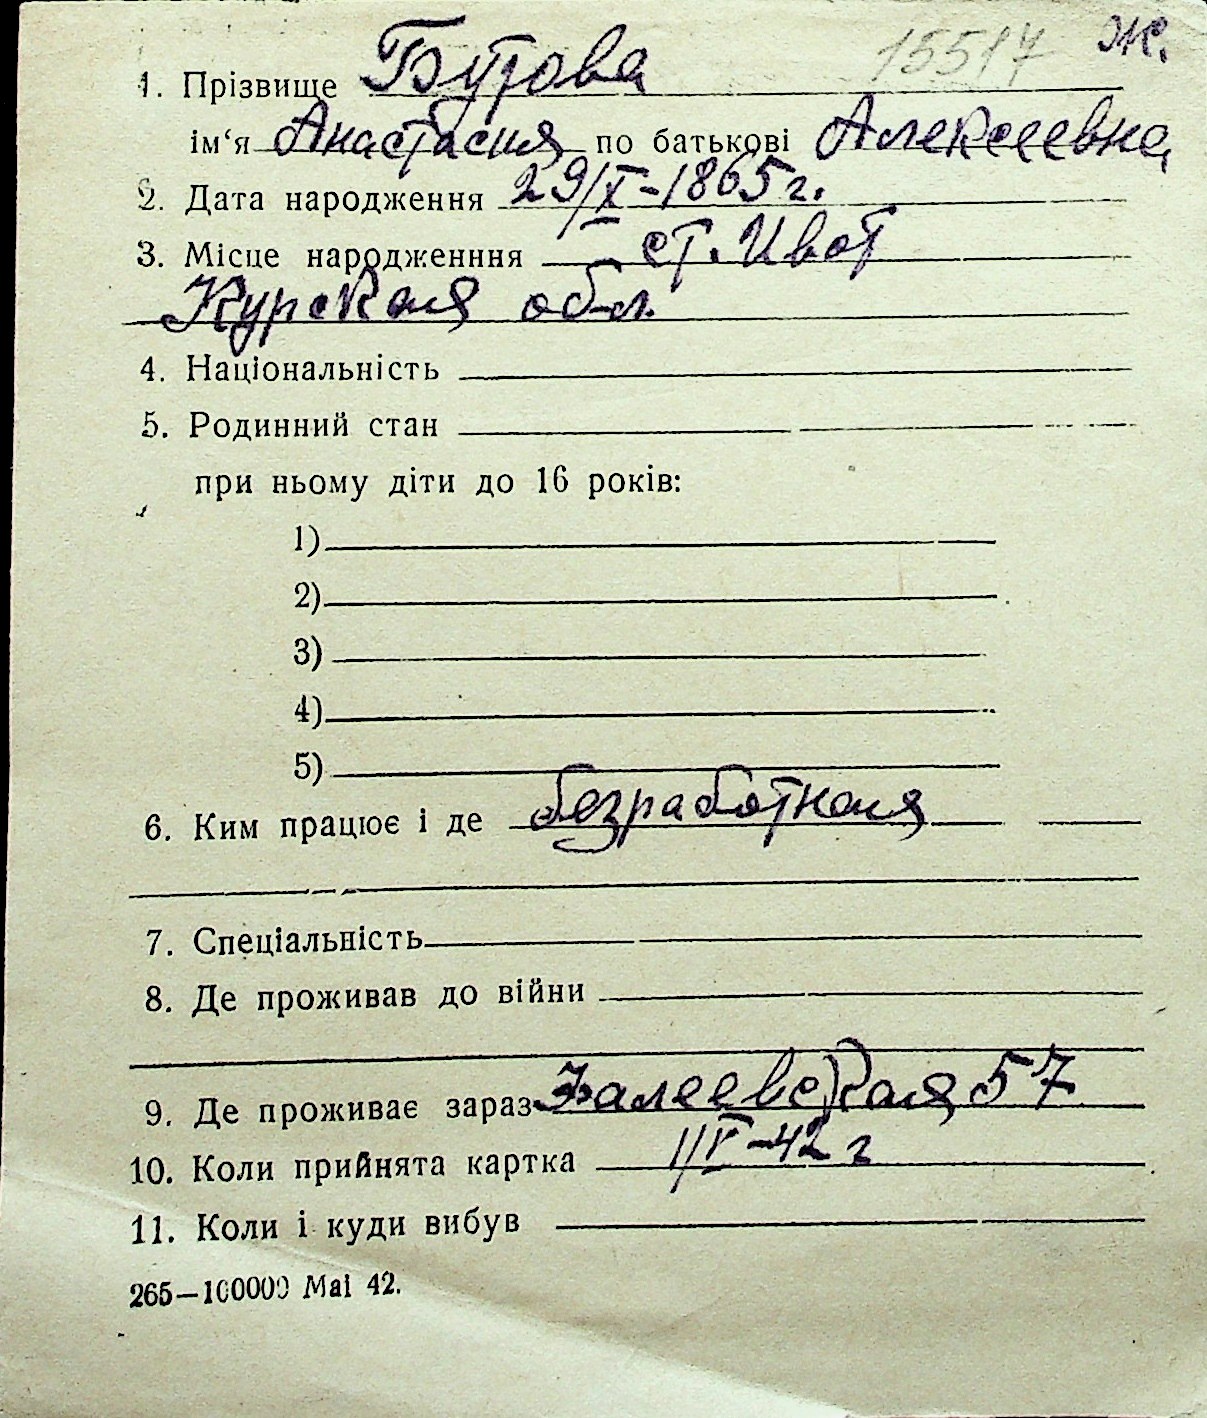 15517 Ж.
1. Прізвище Бутова
ім‘я Анастасия по батькові Алексеевна
2. Дата народження 29/X-1865 г.
3. Місце народженння ст. Ивот
Курская обл.
4. Національність
5. Родинний стан
при ньому діти до 16 років:
1)
2)
3)
4)
5)
6. Ким працює і де безработная
7. Спеціальність
8. Де проживав до війни
9. Де проживає зараз 57
10. Коли прийнята картка 1/V-42 г
11. Коли і куди вибув
265—100000 Mai 42.